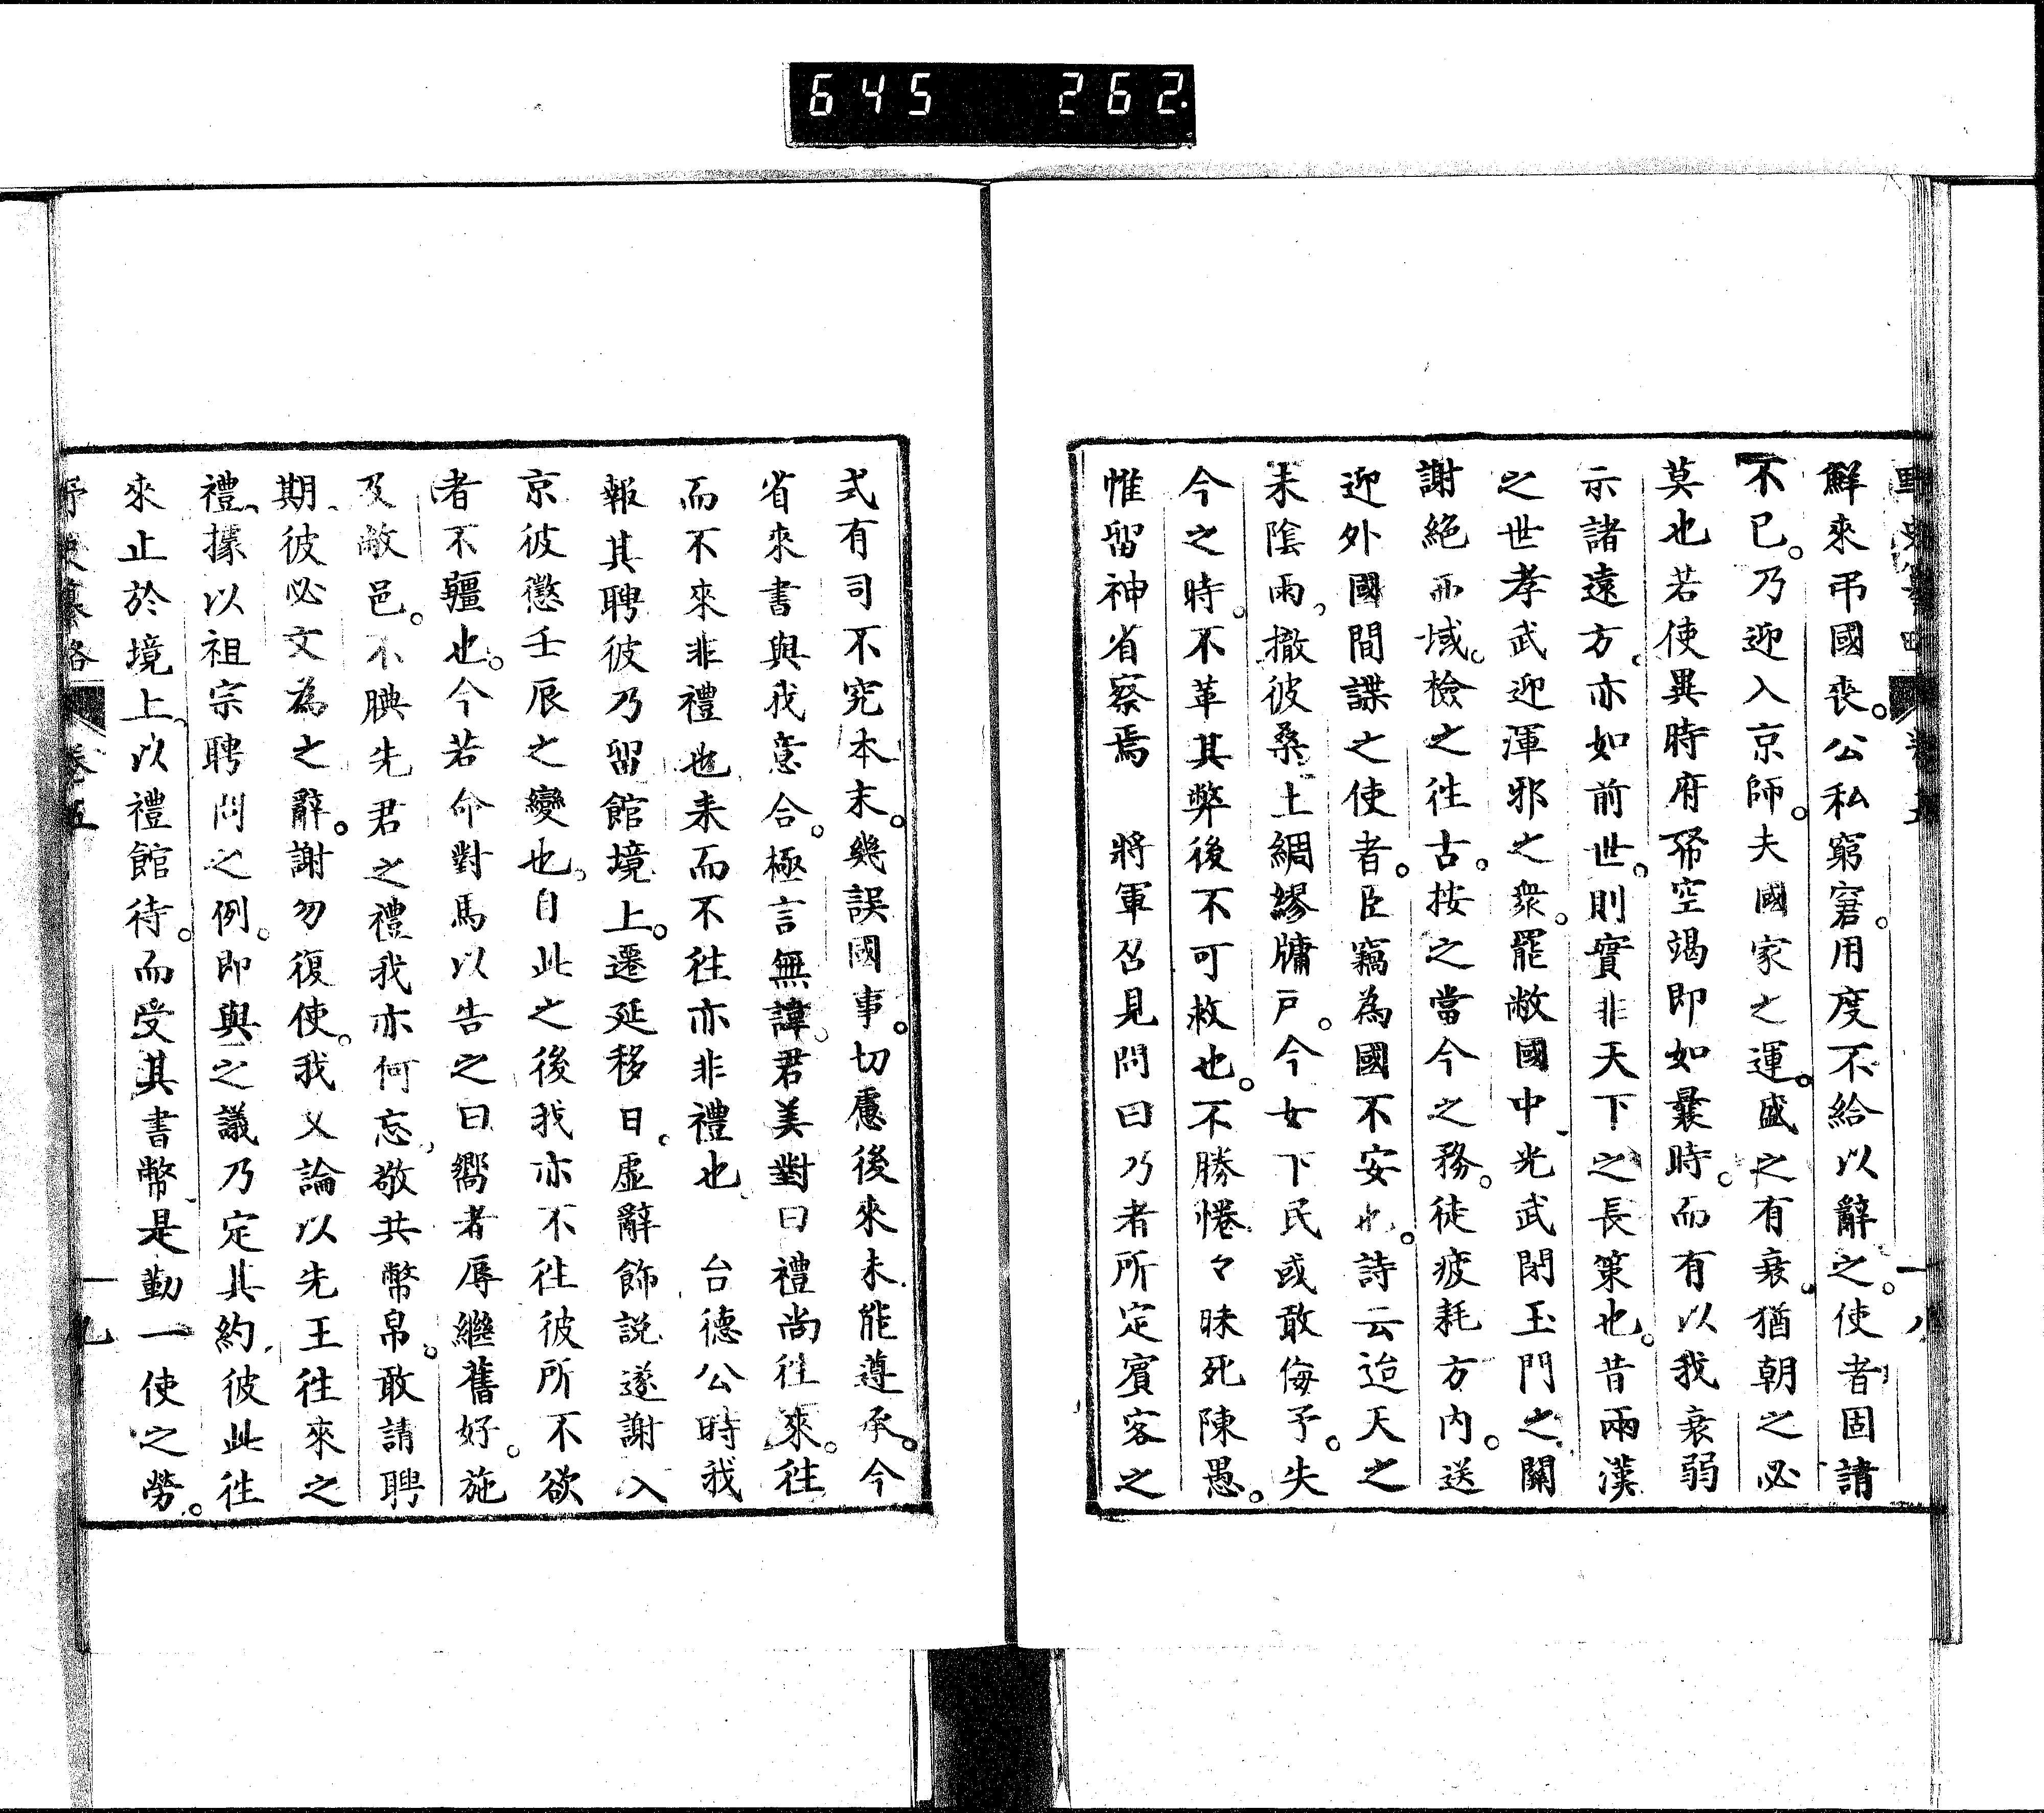 645 262.
鮮來弔國喪。公私窮窘。用度不給以辭之。使者固請
不已。乃迎入京師。夫國家之運。盛之有衰。猶朝之必
莫也若使異時府帑空竭即如曩時。而有以我衰弱
示諸遠方。亦如前世。則實非天下之長策也。昔兩漢
之世孝武迎渾邪之衆。罷敝國中、光武閉玉門之關
謝絕西域。檢之往古。按之當今之務。徒疲耗方內。送
迎外國間諜之使者。臣竊為國不安也。詩云迨天之
未陰雨、撤彼桑土綢繆牖戶。今女下民或敢侮予。失
今之時。不革其弊後不可救也。不勝惓々昧死陳愚。
惟留神省察焉　將軍召見問曰乃者所定賓客之
一八
式有司不究本末。幾誤國事。切慮後來未能遵承。今
省來書與我意合。極言無諱。君美對曰禮尚往來。往
而不來非禮也、來而不往亦非禮也、　台德公時我
報其聘彼乃留館境上。遷延移日。虛辭飾說遂謝入
京彼懲壬辰之變也。自此之後我亦不往彼所不欲
者不疆也。今若命對馬以告之曰嚮者辱繼舊好。施
及敝邑。不腆先君之禮我亦何忘、敬共幣帛。敢請聘
期、彼必文為之辭。謝勿復使。我又論以先王往來之
禮、據以祖宗聘問之例。即與之議乃定其約、彼此往
來止於境上、以禮館待。而受其書幣、是勤一使之勞。
卷五
一九